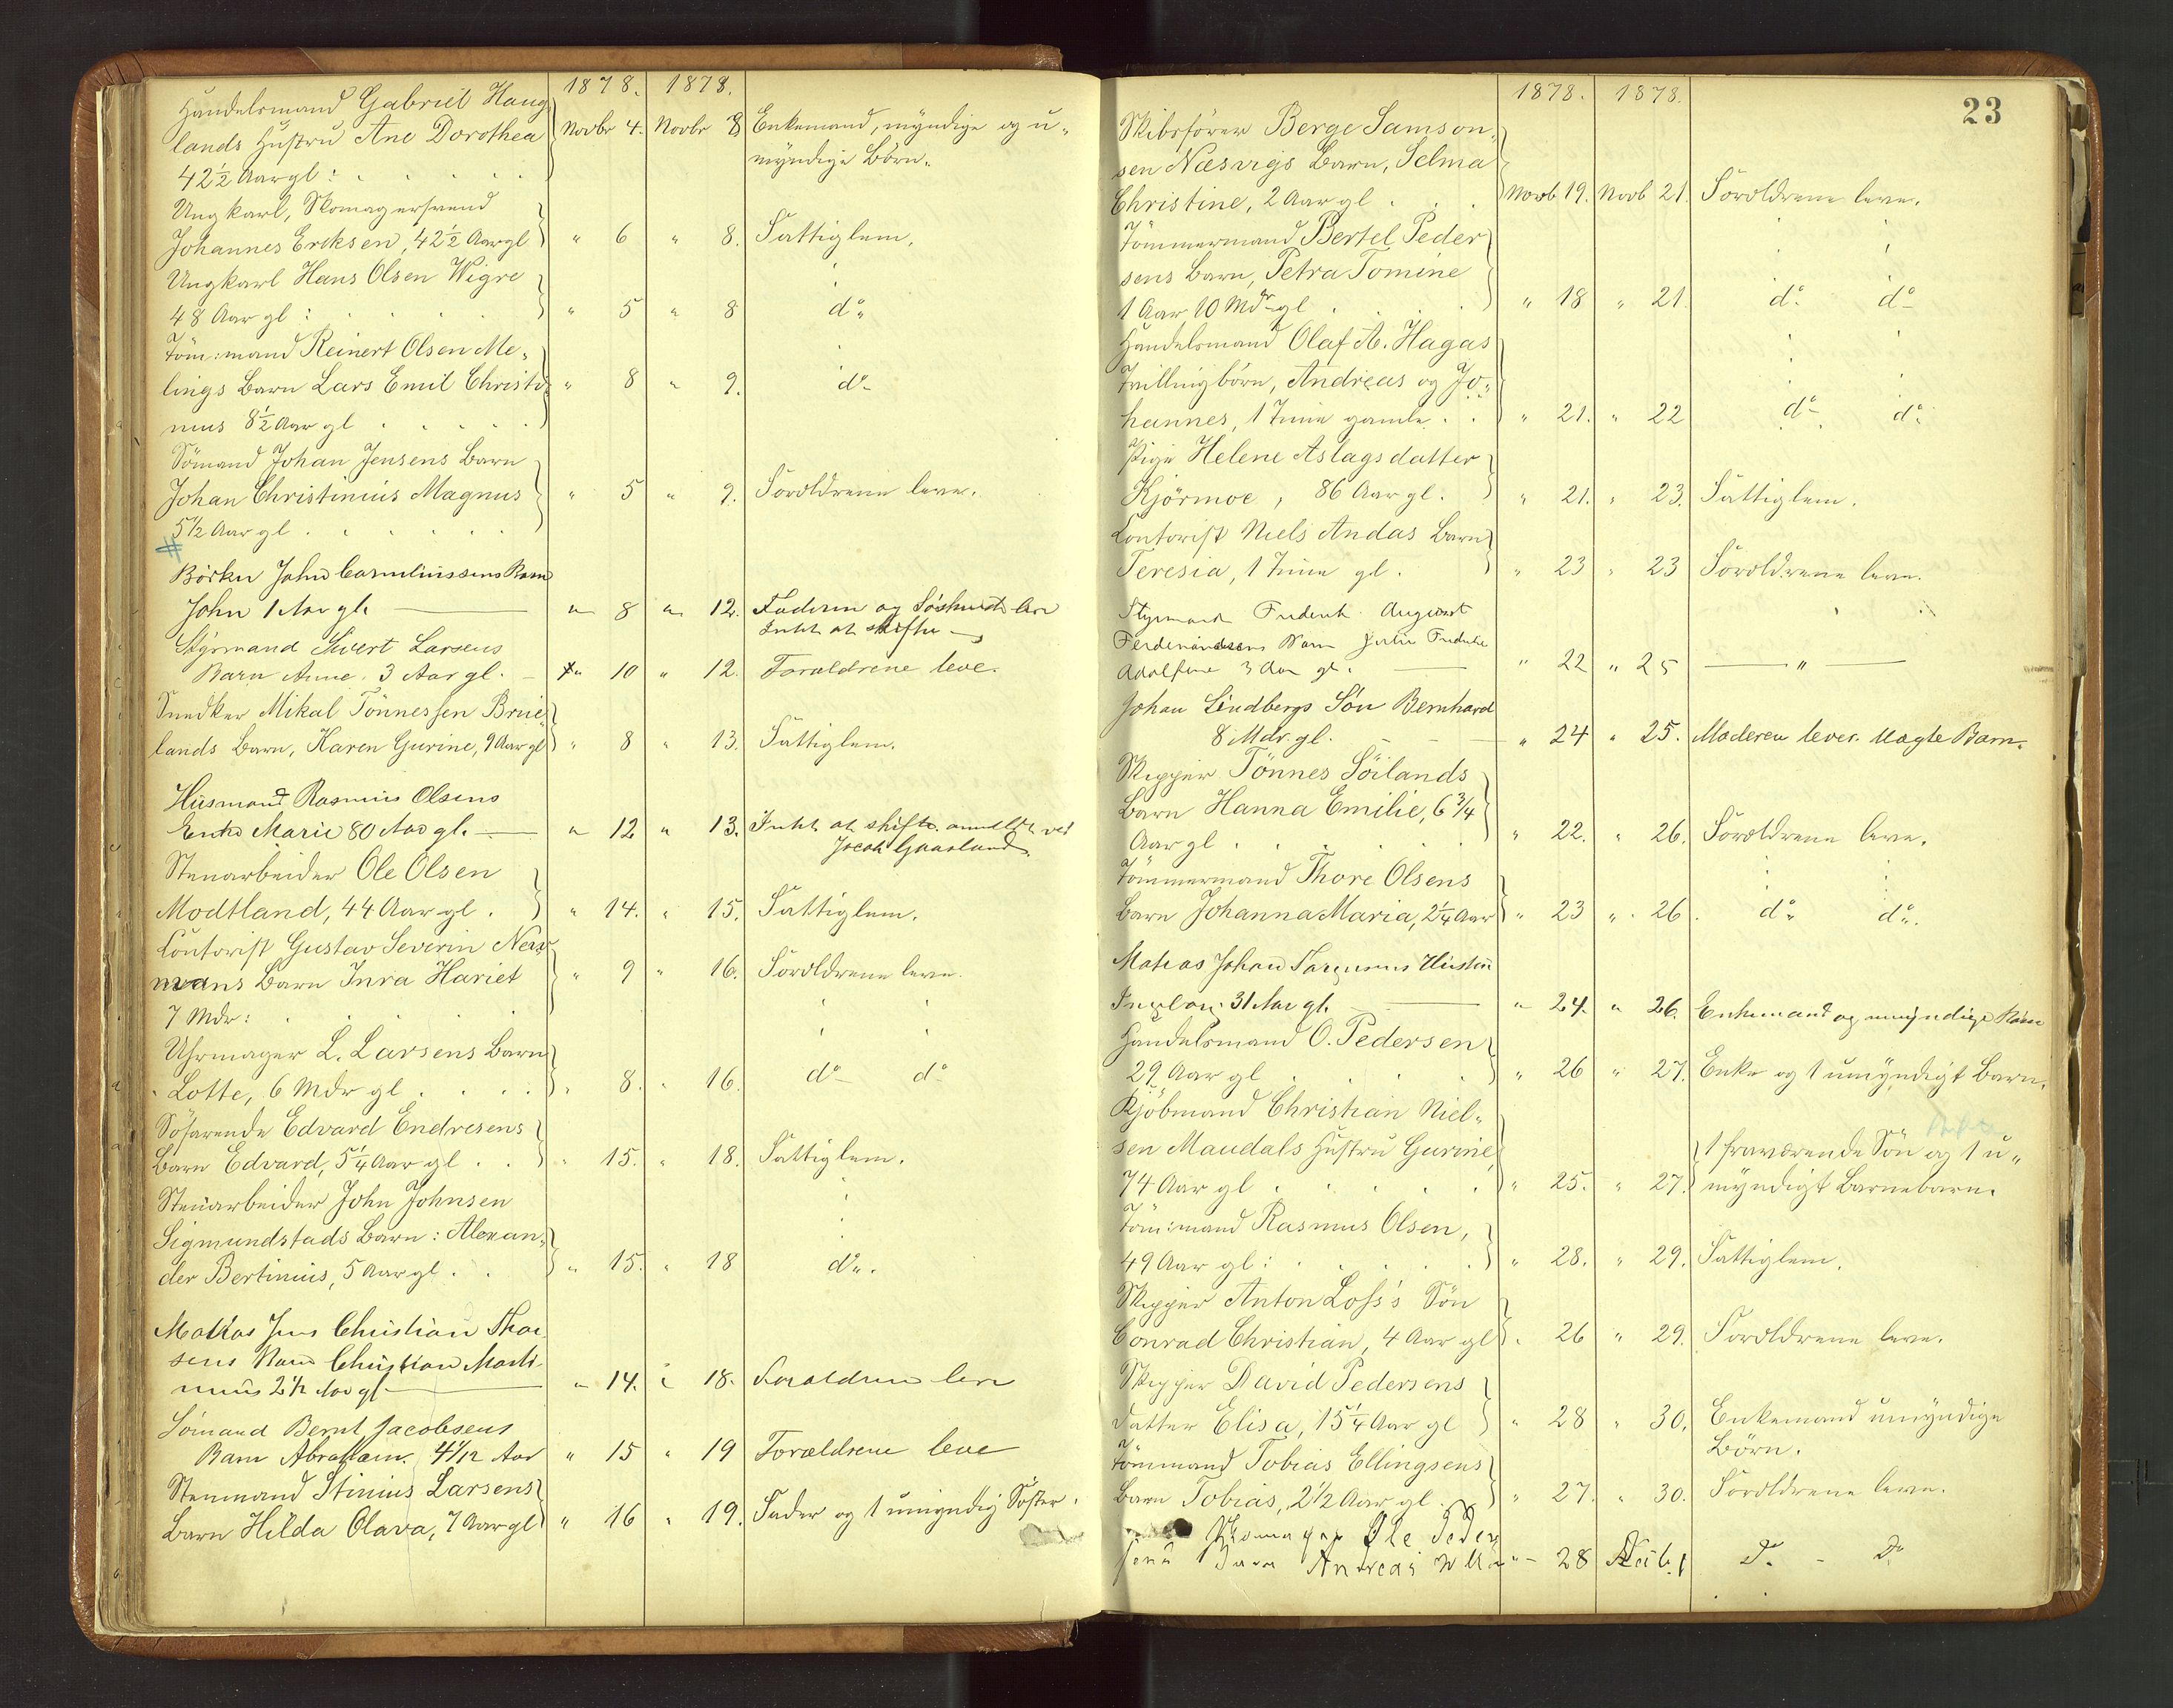 1878. 1878.
Handelsmand Gabriel Haug
lands Hustru Ane Dorothea Novbr 4. Novbr 8 Enkemand, myndige og u-
42½ Aar gl: myndige Børn.
Ungkarl, Skomagersvend
Johannes Eriksen, 42½ Aar gl " 6 " 8. Fattiglem.
Ungkarl Hans Olsen Wigre
48 Aar gl: " 5 " 8 do
Töm:mand Reinert Olsen Me-
lings Barn Lars Emil Christi- " 8 " 9. do
nius 8½ Aar gl
Sömand Johan Jensens Barn
Johan Christinius Magnus " 5 " 9. Forældrene leve.
5½ Aar gl
#
Bödker John Corneliussens Barn
John 1 Aar gl. " 8 " 12. Faderen og leve
Intet at skifte
Styrmand Sivert Larsens
Barn Anne. 3 Aar gl. " 10 " 12. Forældrene leve.
Snedker Mikal Tönnessen Brue-
lands Barn, Karen Gurine, 9 Aar gl " 8 " 13. Fattiglem.
Husmand Rasmus Olsens
Enke Marie 80 Aar gl. " 12 " 13. Intet at skifte anmeldt ved
Jacob Gaarland.
Stenarbeider Ole Olsen
Modtland, 44 Aar gl. " 14. " 15. Fattiglem.
Contorist Gustav Severin
mans Barn Inra Hariet " 9 " 16. Forældrene leve.
7 Mdr:
Uhrmager L. Larsens Barn
Lotte, 6 Mdr gl " 8. " 16. do do
Söfarende Edvard Endresens
Barn Edvard, 5¼ Aar gl " 15. " 18. Fattiglem.
Stenarbeider John Johnsen
Sigmundstads Barn: Alexan-
der Bertinius, 5 Aar gl. " 15. " 18 do.
Matias Jens Christian Thor
sens Barn Christian Marti-
nius 2½ Aar gl " 14. " 18. Forældrene leve
Sömand Bernt Jacobsens
Barn Abraham. 4 1/12 Aar " 15 " 19 Forældrene leve
Stenmand Stinius Larsens
Barn Hilda Olava, 7 Aar gl " 16 " 19. Fader og 1 umyndig Söster.
1878. 1878. 23
Skibsförer Berge Samson-
sen Næsvigs Barn, Selma
Christine, 2 Aar gl Novb 19. Novb 21. Forældrene leve.
Tömmermand Bertel Peder
sens Barn, Petra Tomine
1 Aar 10 Mdr gl " 18 " 21. do do
Handelsmand Olaf A. Hagas
Tvillingbörn, Andreas og Jo-
hannes, 1 Time gamle " 21. " 22 do do
Pige Helene Aslagsdatter
Kjörmoe, 86 Aar gl. " 21. " 23. Fattiglem.
Contorist Niels Andas Barn
Teresia, 1 Time gl. " 23 " 23 Forældrene leve.
Styrmand Frederik August
Ferdinandsens Barn Julie Fredrike
Adolfine 3 Aar gl. " 22 " 25 "
Johan Lindbergs Sön Bernhard
8 Mdr. gl. " 24 " 25. Moderen lever. uægte Barn.
Skipper Tönnes Söilands
Barn Hanna Emilie, 6¾
Aar gl " 22. " 26. Forældrene leve.
Tömmermand Thore Olsens
Barn Johanna Maria, 2¼ Aar " 23 " 26. do do.
Matias Johan Hustru
31 Aar gl. " 24. " 26. Enkemand og umyndige Börn
Handelsmand O. Pedersen
29 Aar gl " 26 " 27. Enke og 1 umyndigt Barn.
Kjöbmand Christian Niel-
sen Maudals Hustru Gurine, 1 fraværende Sön og 1 u-
74 Aar gl " 25. " 27. myndigt Barnebarn.
Töm:mand Rasmus Olsen,
49 Aar gl: " 28. " 29. Fattiglem.
Skipper Anton Loss's Sön
Conrad Christian, 4 Aar gl " 26 " 29. Forældrene leve.
Skipper David Pedersens
Datter Elisa, 15¼ Aar gl " 28 " 30. Enkemand umyndige
Börn.
Tömmand Tobias Ellingsens
Barn Tobias, 2½ Aar gl " 27. " 30. Forældrene leve.
Skomager Ole Peder
sens Barn Andreas " 28 Decb. 1 Do - Do